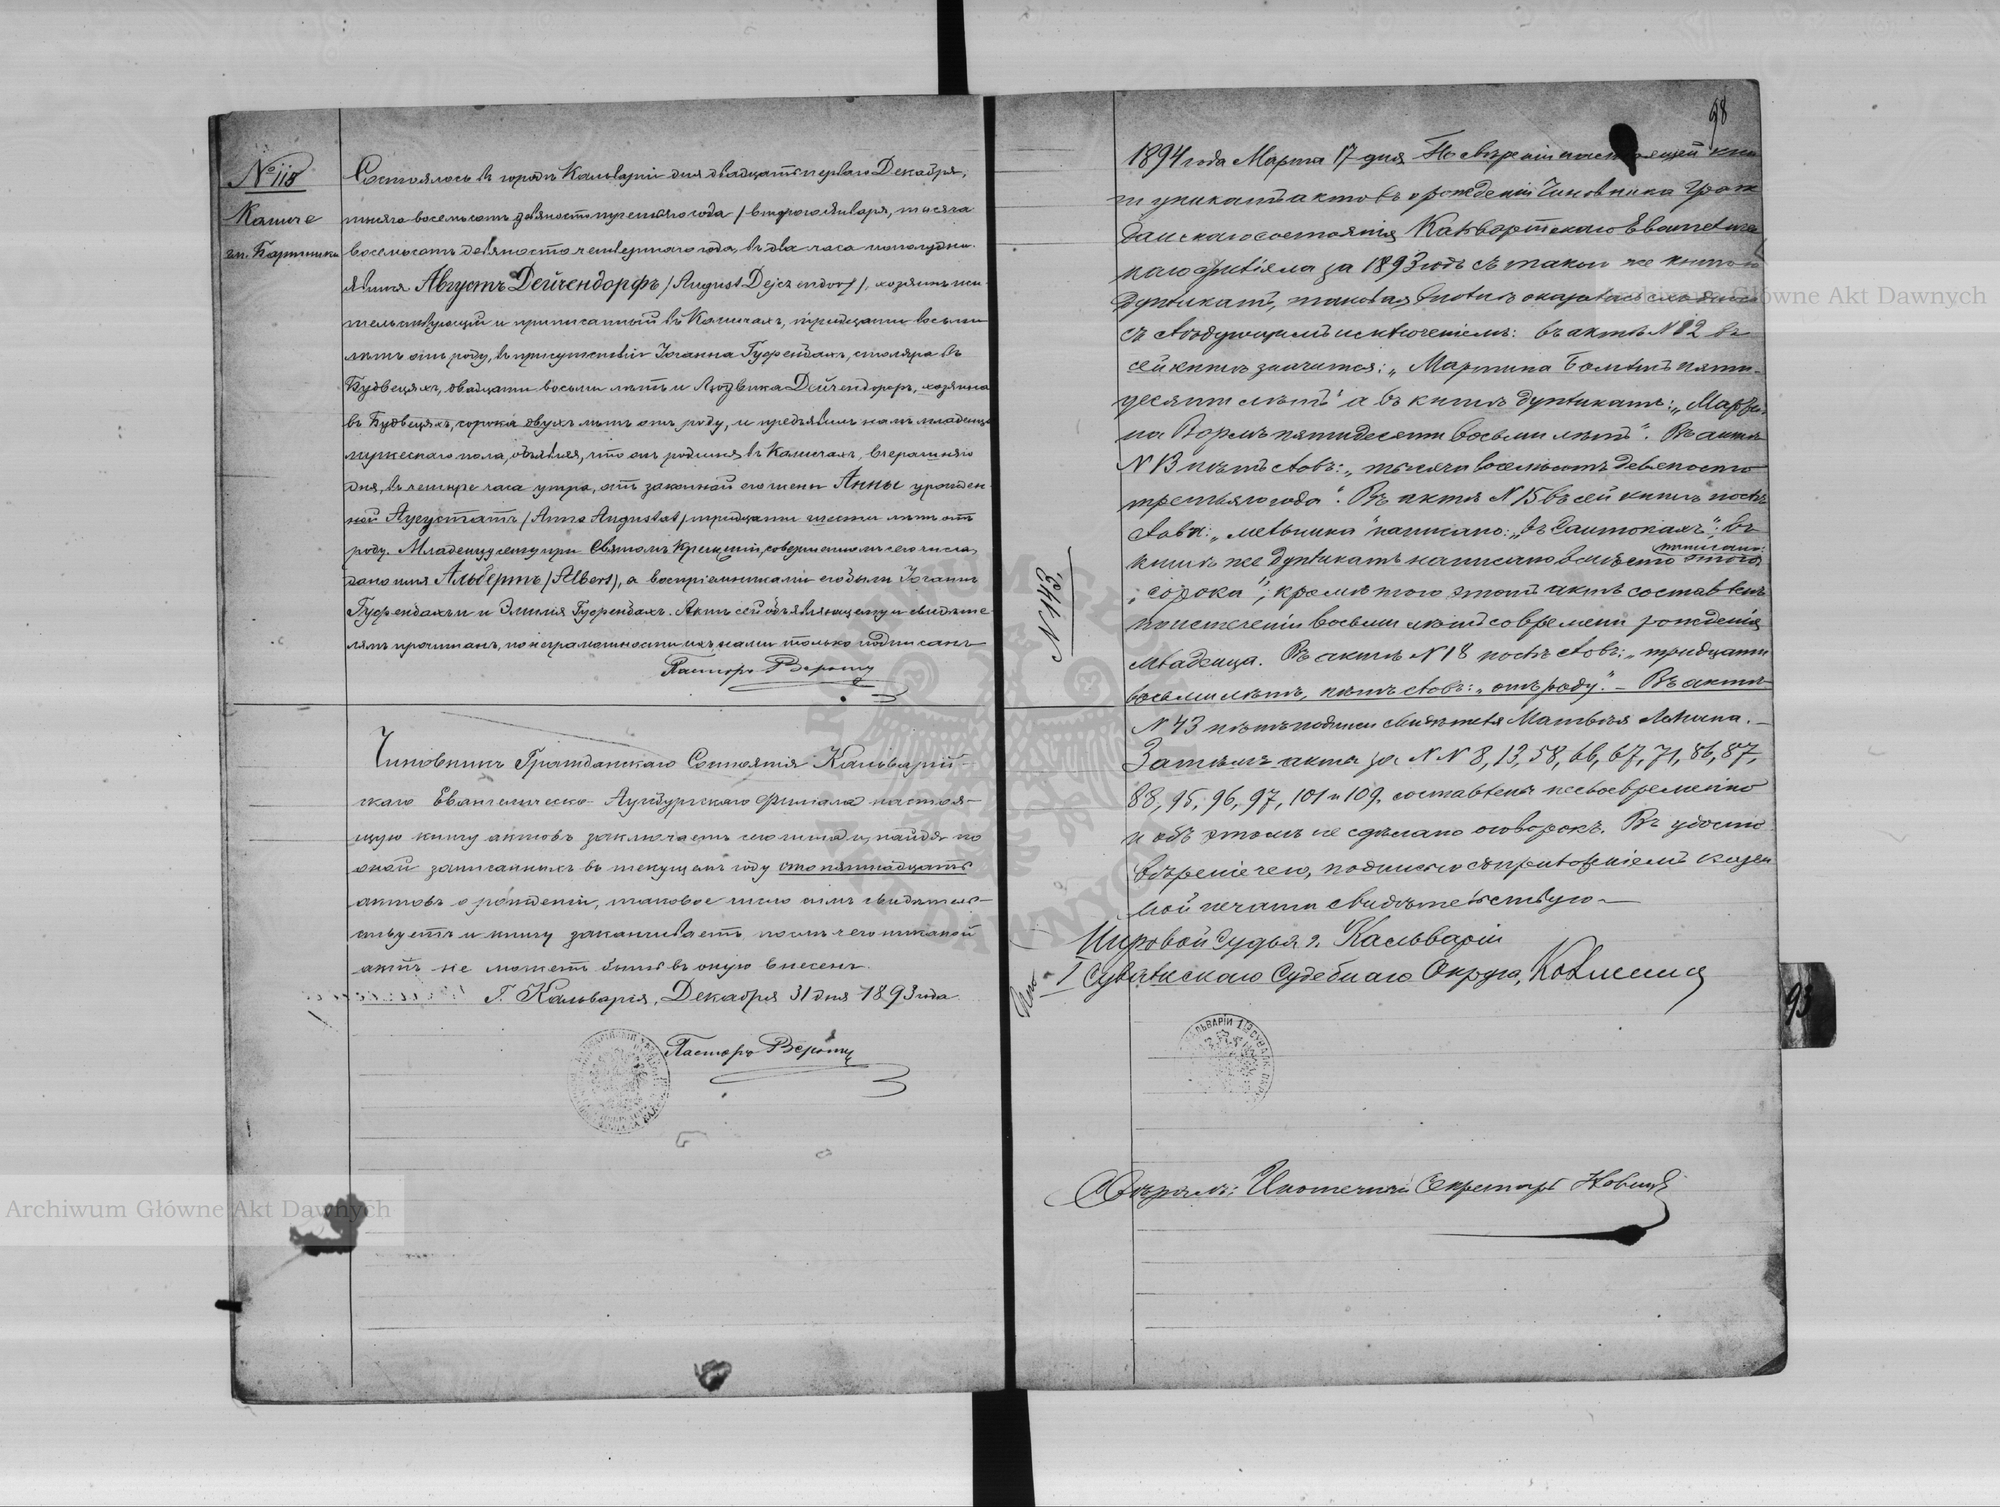 № 115
Камиче
гм. Бартники
Состоялось въ городѣ Кальваріи дня двадцать перваго Декабря,
тысяча восемьсотъ девяносто третьяго года /второго Января, тысяча
восемьсотъ девяносто четвертаго года, въ два часа пополудни.
Явился Августъ Дейчендорфъ /August Dejczendorf/, хозяинъ жи-
тельствующій и приписанный въ Камичахъ, тридцати восьми
лѣтъ отъ роду, въ присутствіи Іоганна Гуфендахъ, столяра въ
Будвецяхъ, двадцати восьми лѣтъ и Людвика Дейчендорфъ, хозяина
въ Будвецяхъ, сорока двухъ лѣтъ отъ роду, и предъявилъ намъ младенца
мужескаго пола, объявляя, что онъ родился въ Камичахъ, вчерашняго
дня, въ четыре часа утра, отъ законной его жены Анны урожден
ной Аугустатъ /Anna Augustat/ тридцати шести лѣтъ отъ
роду. Младенцу сему при Святомъ Крещеніи, совершенномъ сего числа,
дано имя Альбертъ /Albert/, а воспріемниками его были Іоганнъ
Гуфендахъ и Эмилія Гуфендахъ. Актъ сей объявляющему и свидѣте-
лямъ прочитанъ, по неграмотности ихъ нами только подписанъ
Пасторъ
Чиновникъ Гражданскаго Состоянія Кальварій-
скаго Евангелическо-Аугсбургскаго Филіала настоя-
щую книгу актовъ заключаетъ сего числа и, найдя по
оной записанныхъ въ текущемъ году сто пятнадцать
актовъ о рожденіи, таковое число симъ свидѣтель-
ствуетъ и книгу заканчиваетъ, послѣ чего никакой
актъ не можетъ быть въ оную внесенъ.
Г. Кальварія, Декабря 31 дня 1893 года.
Пасторъ
98
1894 года Марта 17 дня По свѣреніи настоящей кни
ги уникатъ актовъ о рожденіи Чиновника Граж
данскаго состоянія Кальварійскаго Евангеличе
скаго филіяла за 1893 годъ съ такою же книгою
дупликатъ, таковая вполнѣ оказалась сходною
съ слѣдующимъ исключеніемъ: въ актѣ № 12 въ
сей книгѣ значится: „Мартина пяти-
десяти лѣтъ" а въ книгѣ дупликатъ: „Марти
на пятидесяти восьми лѣтъ". Въ актѣ
№ 13 нѣтъ словъ: „тысяча восемьсотъ девяносто
третьяго года". Въ актѣ № 15 въ сей книгѣ послѣ
слова: „мельника" написано: „въ "; въ
книгѣ же дупликатъ написано вмѣсто этого
написано:
„сорока"; кромѣ того этотъ актъ составленъ
по истеченіи восьми лѣтъ со времени рожденія
младенца. Въ актѣ № 18 послѣ словъ: „тридцати
восьми лѣтъ, нѣтъ словъ: „отъ роду". – Въ актѣ
№ 43 нѣтъ подписи свидѣтеля Матвѣя. –
Затѣмъ акты за № № 8, 13, 58, 66, 67, 71, 86, 87,
88, 95, 96, 97, 101 и 109, составлены несвоевременно
и объ этомъ не сдѣлано оговорокъ. Въ удосто
вѣреніе чего, подписью съ приложеніемъ казен
ной печати свидѣтельствую –
Мировой Судья г. Кальваріи
I Сувалкскаго Судебнаго Округа,
№ 143
Свѣрялъ: Ипотечный Секретарь Новицкій
93
Archiwum Główne Akt Dawnych
Archiwum Główne Akt Dawnych